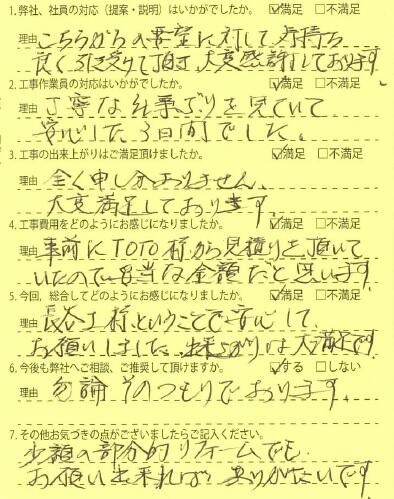 1.弊社、社員の対応（提案・説明）はいかがでしたか。 ☑満足 □不満足
理由 こちらからの希望に対して気持ち
良く引き受けて頂き、大変感謝しております
2.工事作業員の対応はいかがでしたか。 ☑満足 □不満足
理由 丁寧な仕事ぶりを見ていて
安心した3日間でした。
3.工事の出来上がりはご満足頂けましたか。 ☑満足 □不満足
理由 全く申し分ありません。
大変満足しております。
4.工事費用をどのようにお感じになりましたか。 ☑満足 □不満足
理由 事前にTOTO様から見積りを頂いて
いたので妥当な金額だと思います
5.今回、総合してどのようにお感じになりましたか。 ☑満足 □不満足
理由 長谷工様ということで安心して
お願いしました。出来上がりは大満足です
6.今後も弊社へご相談、ご推奨して頂けますか。 ☑する □しない
理由 勿論そのつもりでおります。
7.その他お気づきの点がございましたらご記入ください。
少額の部分的リフォームでも
お願い出来れば ありがたいです